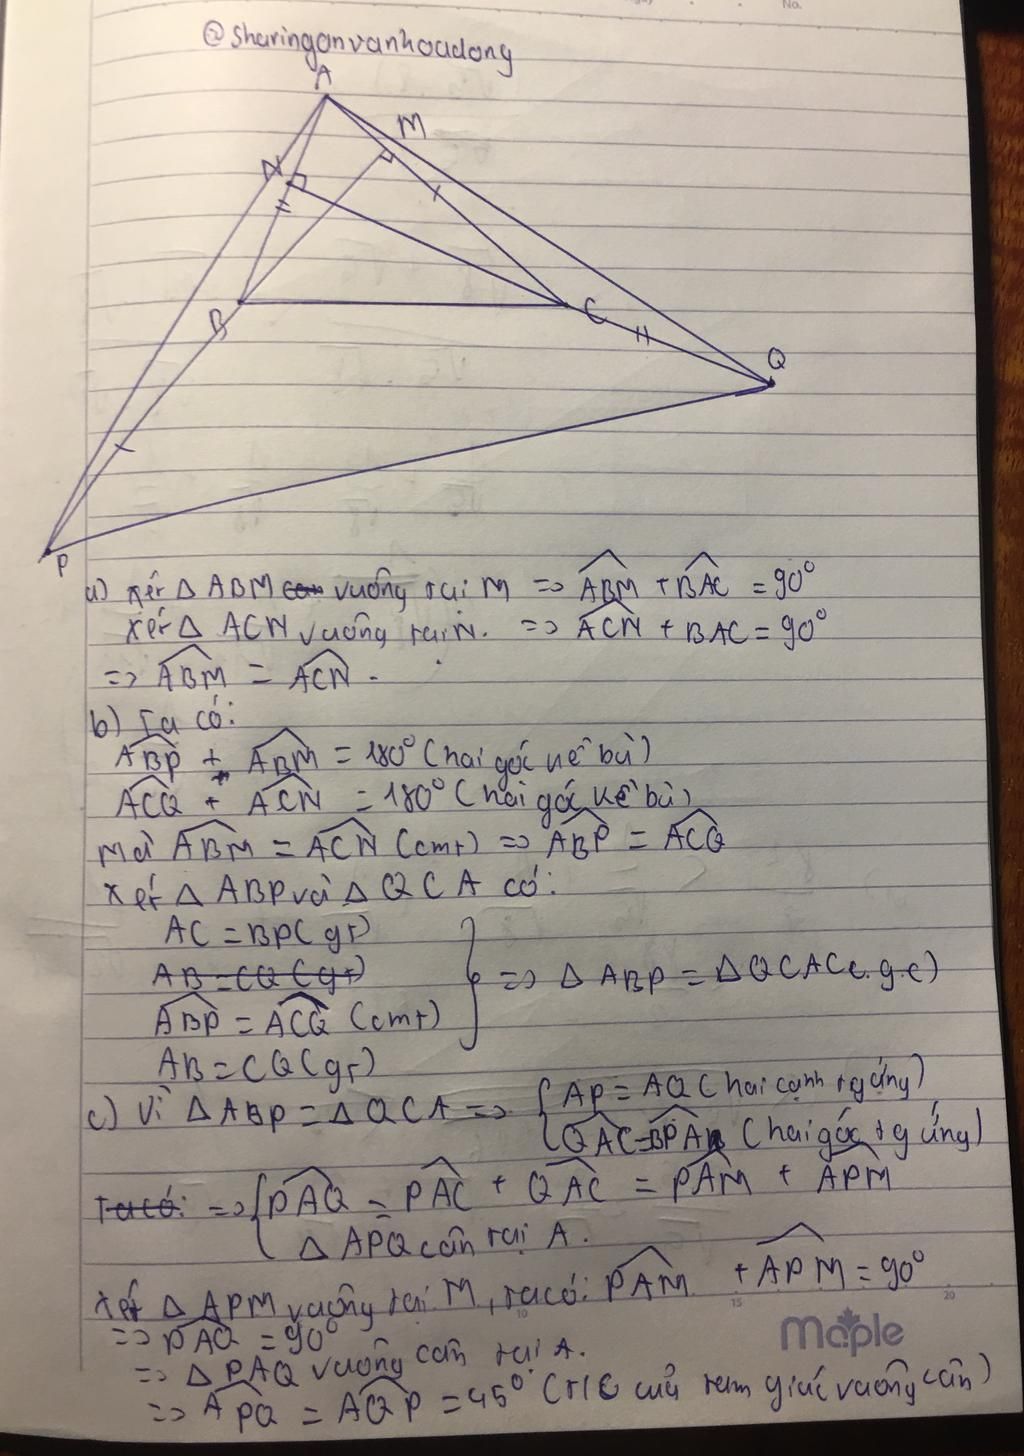 No.
@sharinganvanhoadong
A
M
N
B
C
Q
P
a) xét Δ ABM vuông tại M => ABM + BAC = 90°
xét Δ ACN vuông tại N. => ACN + BAC = 90°
=> ABM = ACN.
b) Ta có:
ABP + ABM = 180° (hai góc kề bù)
ACQ + ACN = 180° (hai góc kề bù)
Mà ABM = ACN (cmt) => ABP = ACQ
Xét Δ ABP và Δ QCA có:
AC = BP (gt)
AB = CQ (gt)
ABP = ACQ (cmt) } => Δ ABP = Δ QCA (c.g.c)
AB = CQ (gt)
c) Vì Δ ABP = Δ QCA => { AP = AQ (hai cạnh tg ứng)
QAC = BPA (hai góc tg ứng)
Ta có: => { PAQ = PAC + QAC = PAM + APM
Δ APQ cân tại A.
Xét Δ APM vuông tại M, ta có: PAM + APM = 90°
=> PAQ = 90°
=> Δ PAQ vuông cân tại A.
=> APQ = AQP = 45° (t/c của tam giác vuông cân)
10
15
20
Maple